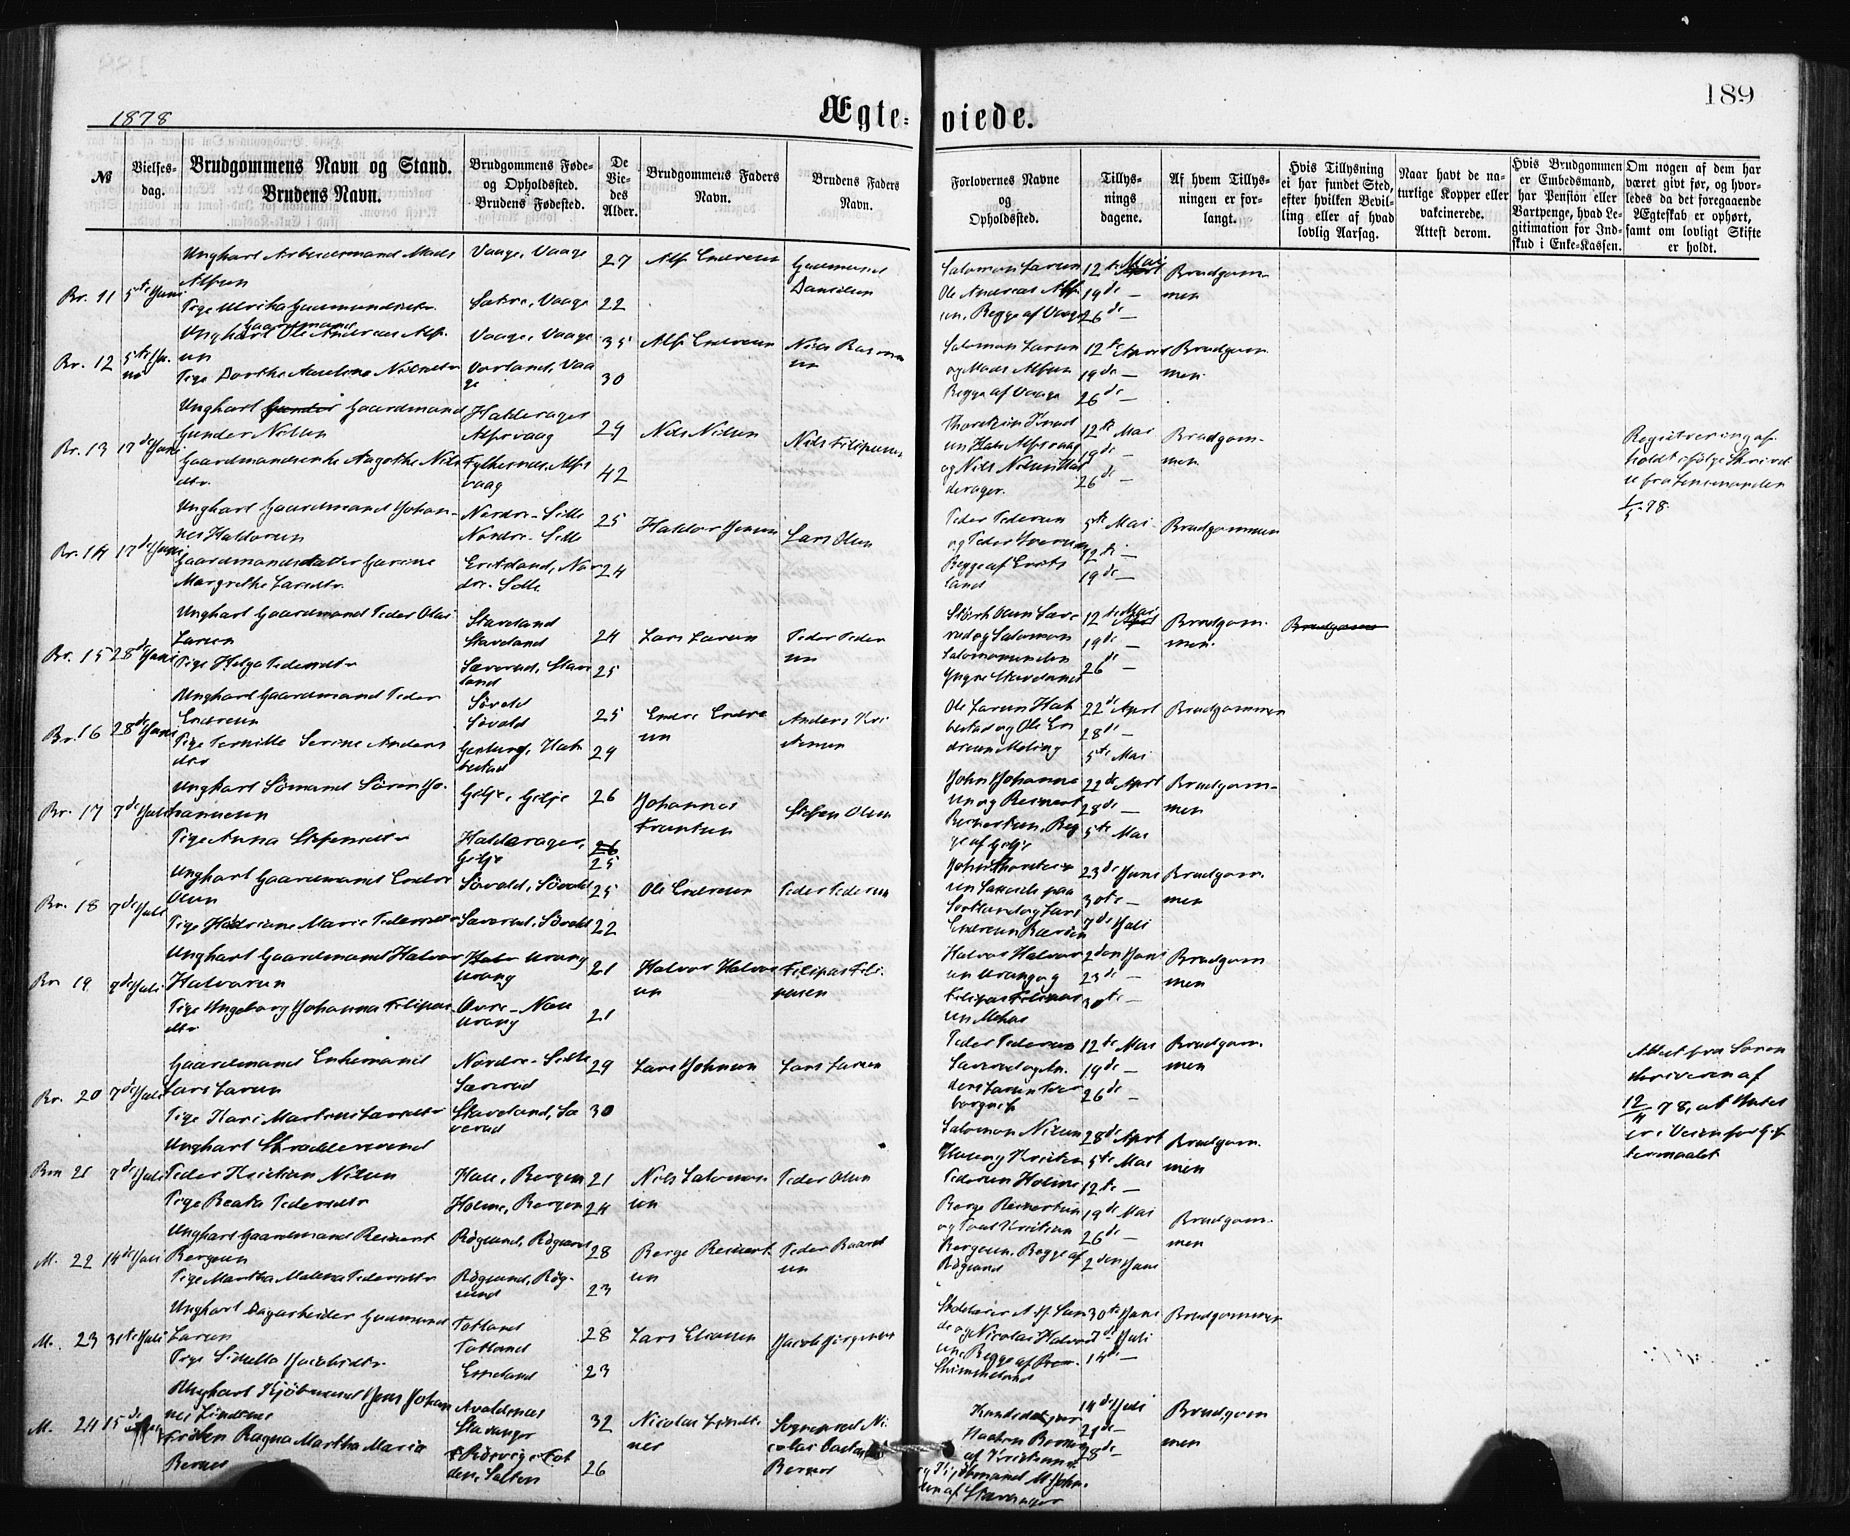 1878
Ægte-viede.
189
№
Vielses-
dag.
Brudgommens Navn og Stand.
Brudens Navn.
Brudgommens Føde-
og Opholdsted.
Brudens Fødested.
De
Vie-
des
Alder.
Brudgommens Faders
Navn.
Brudens Faders
Navn.
Forlovernes Navne
og
Opholdsted.
Tillys-
nings
dagene.
Af hvem Tillys-
ningen er for-
langt.
Hvis Tillysning
ei har fundet Sted,
efter hvilken Bevil-
ling eller af hvad
lovlig Aarsag.
Naar havt de na-
turlige Kopper eller
vakcinerede.
Attest derom.
Hvis Brudgommen
er Embedsmand,
har Pension eller
Vartpenge, hvad Le-
gitimation for Ind-
skud i Enke-Kassen.
Om nogen af dem har
været givt før, og hvor-
ledes da det foregaaende
Ægteskab er ophørt,
samt om lovligt Skifte
er holdt.
Br. 11 5te Juni
Ungkarl Arbeidsmand Mads
Alfsen
Pige Ulrika Gudmundsdtr
Vaage, Vaage
Sætre, Vaage
27
22
Alf Endresen
Gudmund
Danielsen
Salomon Larsen
Ole Andreas Alf-
sen, Begge af Vaage
12te Mai
19de —
26de —
Brudgom-
men
Br. 12 5te Ju-
ni
Ungkarl Gaardmand Ole Andreas Alf-
sen
Pige Dorthe Aaselene Nilsdtr
Vaage, Vaage
Vorland, Vaa
ge
35
30
Alf Endresen
Nils Rasmus
sen
Salomon Larsen
og Mads Alfsen
Begge af Vaage
12te April
19de —
26de —
Brudgom-
men
Br. 13 17de Juni
Ungkarl Gaardmand
Gunder Nilsen
Gaardmandsenke Aagothe Nils
dtr.
Halderager
Alfsvaag
Fylkesnes, Alfs
vaag
29
42
Nils Nilsen
Nils Filipusen
og Nils Nilsen Hal
derager.
12te Mai
19de —
26de —
Brudgom-
men
Registrering af-
holdt ifølge Skrivel
se fra Lensmanden
1/5 78.
Br. 14 17de Juni
Ungkarl Gaardmand Johan-
nes Haldorsen
Gaardmandsdatter Gurine
Margrethe Larsdtr.
Nordre-Sille
Nordre-Sille
Eritsland, Nor
dre-Selle
25
24
Haldor Jensen
Lars Olsen
Peder Pedersen
og Peder Iversen
Begge af Erits
land
5te Mai
12te —
19de —
Brudgommen
Br. 15 28de Juni
Ungkarl Gaardmand Peder Olai
Larsen
Pige Helga Pedersdtr
Staveland
Staveland
Sæverud, Stave
land
24
25
Lars Larsen
Peder Peder
sen
Størk Olsen Sæve
rud og Salomon
Salomonsen den
Yngre Staveland
12te Mai
19de —
26de —
Brudgom-
men.
Br. 16 28de Juni
Ungkarl Gaardmand Peder
Endresen
Pige Pernille Serine Anders
dtr
Søvold
Søvold
25
29
Endre Endre
sen
Anders Kri
stensen
Ole Larsen Hab
bestad og Ole En
dresen Meling
22de April
28de —
5te Mai
Brudgommen
Br. 17 7de Juli
Ungkarl Sømand Søren Jo-
hannesen
Pige Anna Stefensdtr
Gilje, Gilje
Halderager,
Gilje
26
25
Johannes
Stefen Olsen
John Johanne
sen og Reinert
Reinertsen, Beg
ge af Gilje
22de April
28de —
5te Mai
Brudgom-
men
Br. 18 7de Juli
Ungkarl Gaardmand Endre
Olsen
Pige Hadriane Marie Pedersdtr
Søvold, Søvold
Sæverud, Søvold
25
22
Ole Endresen
Peder Pedersen
23de Juni
30te —
7de Juli
Brudgom
men
Br. 19 7de Juli
Ungkarl Gaardmand Halvor
Halvorsen
Pige Ingeborg Johanna Filipus-
dtr
Urang
Urang
Øvre-Nau
Urang
21
21
Halvor Halvor
sen
Filipus Fili-
pusen
Halvor Halvor
sen Urang og
Filipus Filipus
sen Mehus
2den Juni
23de —
30te —
Brudgom
men
Br. 20 7de Juli
Gaardmand Enkemand
Lars Larsen
Pige Kari Martini Larsdtr
Nordre-Selle
Sæverud
Staveland, Sæ
verud
29
30
Lars Johnsen
Lars Larsen
Peder Pedersen
12te Mai
19de —
26de —
Brudgom-
men
Attest fra Soren
skriveren af
12/4 78, at Intet
er i Veien for Gif
termaalet
Brn 21 7de Juli
Ungkarl Skræddersvend
Peder Kristian Nilsen
Pige Beata Pedersdtr
Hau, Bergen
Holme, Bergen
21
24
Nils Salomon
sen
Peder Olsen
Salomon Nilsen
Hau og Kristen
Pedersen Holme
28de April
5te Mai
12te —
Brudgom-
men
M. 22 14de Juli
Ungkarl Gaardmand Reinert
Bergesen
Pige Martha Malena Pedersdtr
Røgsund, Røgsund
Røgsund, Røg-
sund
28
23
Berge Reinert
sen
Peder Baard
sen
Berge Reinertsen
og Poul Kristian
Bergesen, Begge af
Røgsund
19de Mai
26de —
2den Juni
Brudgom-
men
M. 23 31te Juli
Ungkarl Dagarbeider Gudmund
Larsen
Pige Sidsella Jacobsdtr
Totland
Totland
Espeland
28
23
Lars Eliasen
30te Juni
7de Juli
14de —
Brudgommen
M. 24 15de
Ungkarl Kjøbmand Jens Johan
nes Lindtner
Frøken Ragna Martha Maria
Berner
Avaldsnes
Stavanger
32
26
Nicolai Lindt-
ner
Sogneprest Ni-
colai
Berner
Kandidat
Haaken Berner
af Kristiania
og Kjøbmand M. John-
sen af Stavanger
14de Juli
21de —
28de —
Brudgom
men